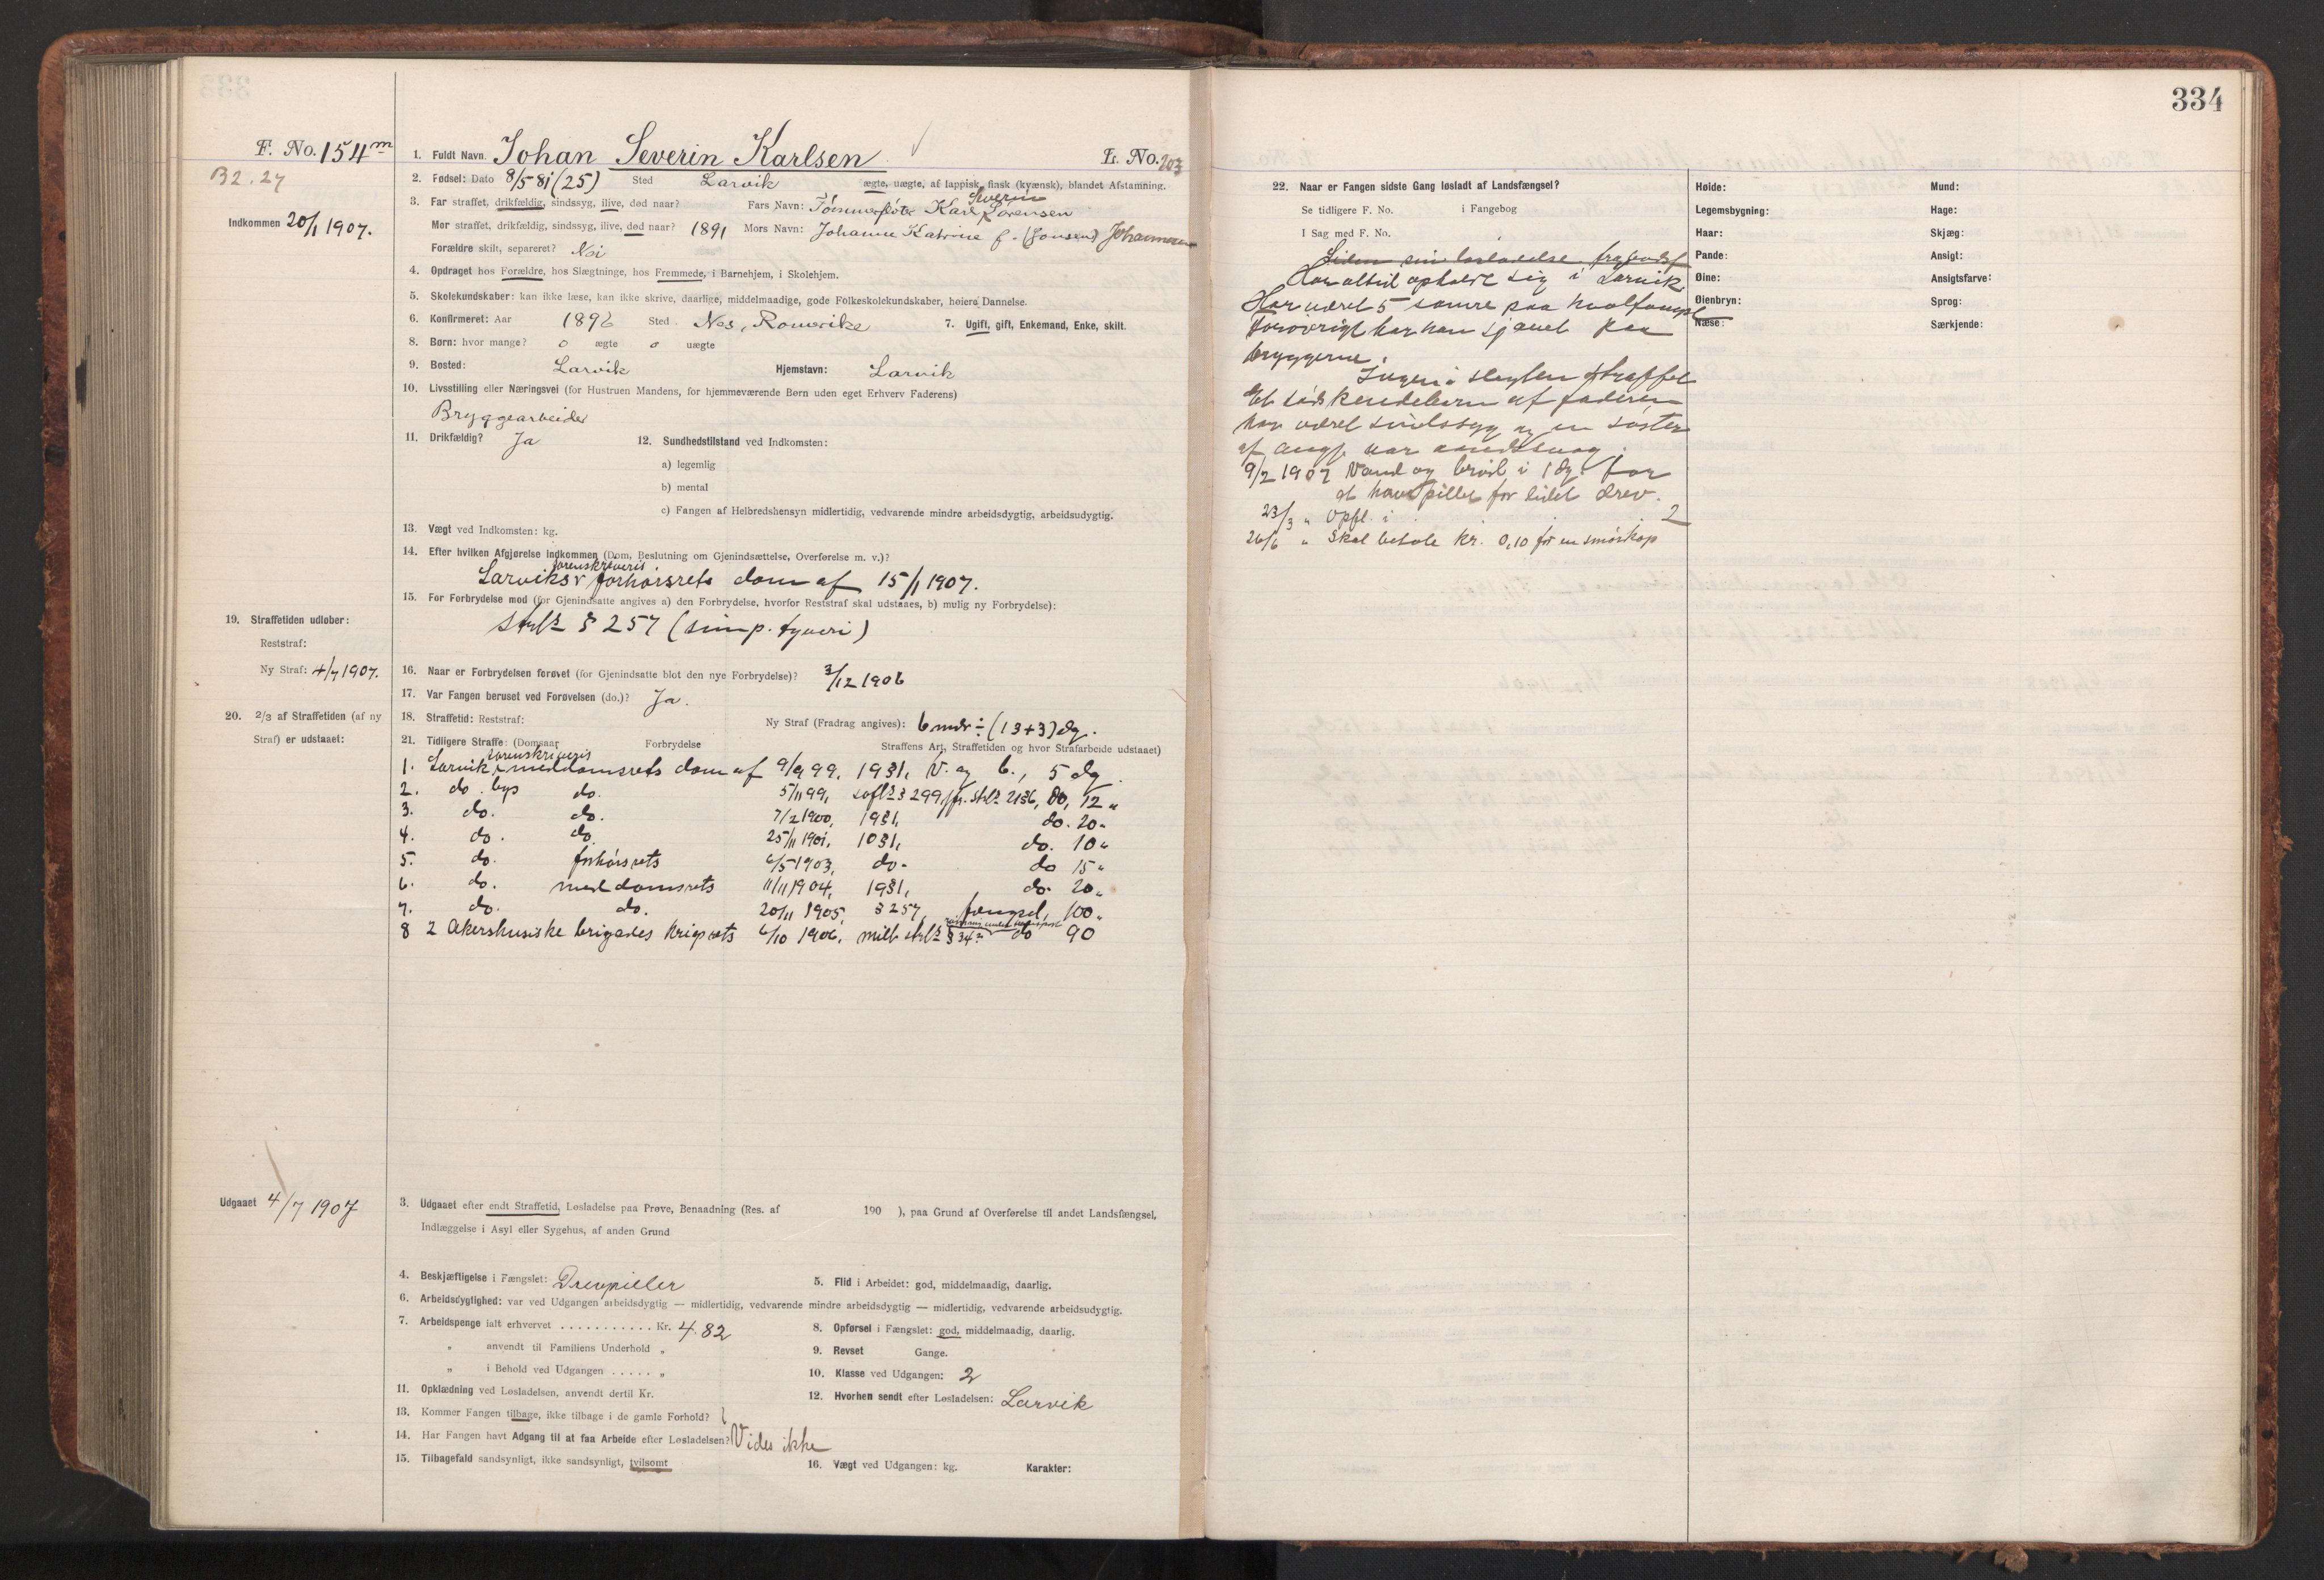 334
F. No. 154 m
B2. 27
Indkommen 20/1 1907.
1. Fuldt Navn. Johan Severin Karlsen
L. No. 203
2. Fødsel: Dato 8/5 81 (25) Sted Larvik ægte, uægte, af lappisk, finsk (kvænsk), blandet Afstamning.
Severin
3. Far straffet, drikfældig, sindssyg, ilive, død naar? Fars Navn: Tømmerfløter Karl Sørensen
Mor straffet, drikfældig, sindssyg, ilive, død naar? 1891 Mors Navn: Johanne Katrine f. (Jonsen) Johannesen
Forældre skilt, separeret? Nei
4. Opdraget hos Forældre, hos Slægtninge, hos Fremmede, i Barnehjem, i Skolehjem.
5. Skolekundskaber: kan ikke læse, kan ikke skrive, daarlige, middelmaadige, gode Folkeskolekundskaber, høiere Dannelse.
6. Konfirmeret: Aar 1896 Sted Nes, Romerike 7. Ugift, gift, Enkemand, Enke, skilt.
8. Børn: hvor mange? 0 ægte 0 uægte
9. Bosted: Larvik Hjemstavn: Larvik
10. Livsstilling eller Næringsvei (for Hustruen Mandens, for hjemmeværende Børn uden eget Erhverv Faderens)
Bryggearbeider
11. Drikfældig? Ja 12. Sundhedstilstand ved Indkomsten:
a) legemlig
b) mental
c) Fangen af Helbredshensyn midlertidig, vedvarende mindre arbeidsdygtig, arbeidsudygtig.
13. Vægt ved Indkomsten: kg.
14. Efter hvilken Afgjørelse indkommen (Dom, Beslutning om Gjenindsættelse, Overførelse m. v.)?
sorenskriveris
Larviks forhørsrets dom af 15/1 1907.
15. For Forbrydelse mod (for Gjenindsatte angives a) den Forbrydelse, hvorfor Reststraf skal udstaaes, b) mulig ny Forbrydelse):
strl. § 257 (simp. tyveri)
19. Straffetiden udløber:
Reststraf:
Ny Straf: 4/7 1907.
16. Naar er Forbrydelsen forøvet (for Gjenindsatte blot den nye Forbrydelse)? 3/12 1906
17. Var Fangen beruset ved Forøvelsen (do.)? Ja.
20. 2/3 af Straffetiden (af ny
Straf) er udstaaet:
18. Straffetid: Reststraf: Ny Straf (Fradrag angives): 6 mdr ÷ (13+3) dg.
21. Tidligere Straffe: (Domsaar Forbrydelse Straffens Art, Straffetiden og hvor Strafarbeide udstaaet)
sorenskriveris
1. Larvik meddomsrets dom af 9/9 99, 19§1, V. og b., 5 dg.
2. do. bys do. 5/11 99, § 299, jfr. strl. 21§6, do, 12 "
3. do. do. 7/2 1900, 19§1, do. 20 "
4. do. do. 25/11 1901, 10§1, do. 10 "
5. do. forhørsrets 6/5 1903, do. do 15 "
6. do. meddomsrets 11/11 1904, 19§1, do. 20 "
7. do. do. 20/11 1905, § 257, fængsel, 100 "
8 2 Akershusiske brigades krigsrets 6/10 1906, milt strl. § 34 do 90
Udgaaet 4/7 1907
3. Udgaaet efter endt Straffetid, Løsladelse paa Prøve, Benaadning (Res. af 190 ), paa Grund af Overførelse til andet Landsfængsel,
Indlæggelse i Asyl eller Sygehus, af anden Grund
4. Beskjæftigelse i Fængslet: Drevpiller 5. Flid i Arbeidet: god, middelmaadig, daarlig.
6. Arbeidsdygtighed: var ved Udgangen arbeidsdygtig — midlertidig, vedvarende mindre arbeidsdygtig — midlertidig, vedvarende arbeidsudygtig.
7. Arbeidspenge ialt erhvervet . . . . . . . . . . . Kr. 4.82 8. Opførsel i Fængslet: god, middelmaadig, daarlig.
" anvendt til Familiens Underhold " 9. Revset Gange.
" i Behold ved Udgangen . . . . . " 10. Klasse ved Udgangen: 2
11. Opklædning ved Løsladelsen, anvendt dertil Kr. 12. Hvorhen sendt efter Løsladelsen: Larvik
13. Kommer Fangen tilbage, ikke tilbage i de gamle Forhold?
14. Har Fangen havt Adgang til at faa Arbeide efter Løsladelsen? Vides ikke
15. Tilbagefald sandsynligt, ikke sandsynligt, tvilsomt 16. Vægt ved Udgangen: kg. Karakter:
22. Naar er Fangen sidste Gang løsladt af Landsfængsel?
Se tidligere F. No. i Fangebog
I Sag med F. No.
Siden sin løsladelse fra
Har altid opholdt sig i Larvik.
Har været 5 somre paa hvalfangst
forøvrigt har han sjauet paa
bryggerne.
Ingen i slegten straffet
Et søskendebarn af faderen
har været sindssyg og en søster
af angj. var aandssvag.
9/2 1907 Vand og brød i 1 dg. for
at have pillet for lidet drev.
23/3 " Opfl. i 2
26/6 " Skal betale kr. 0,10 for en smørkop
Høide:
Legemsbygning:
Haar:
Pande:
Øine:
Øienbryn:
Næse:
Mund:
Hage:
Skjæg:
Ansigt:
Ansigtsfarve:
Sprog:
Særkjende: